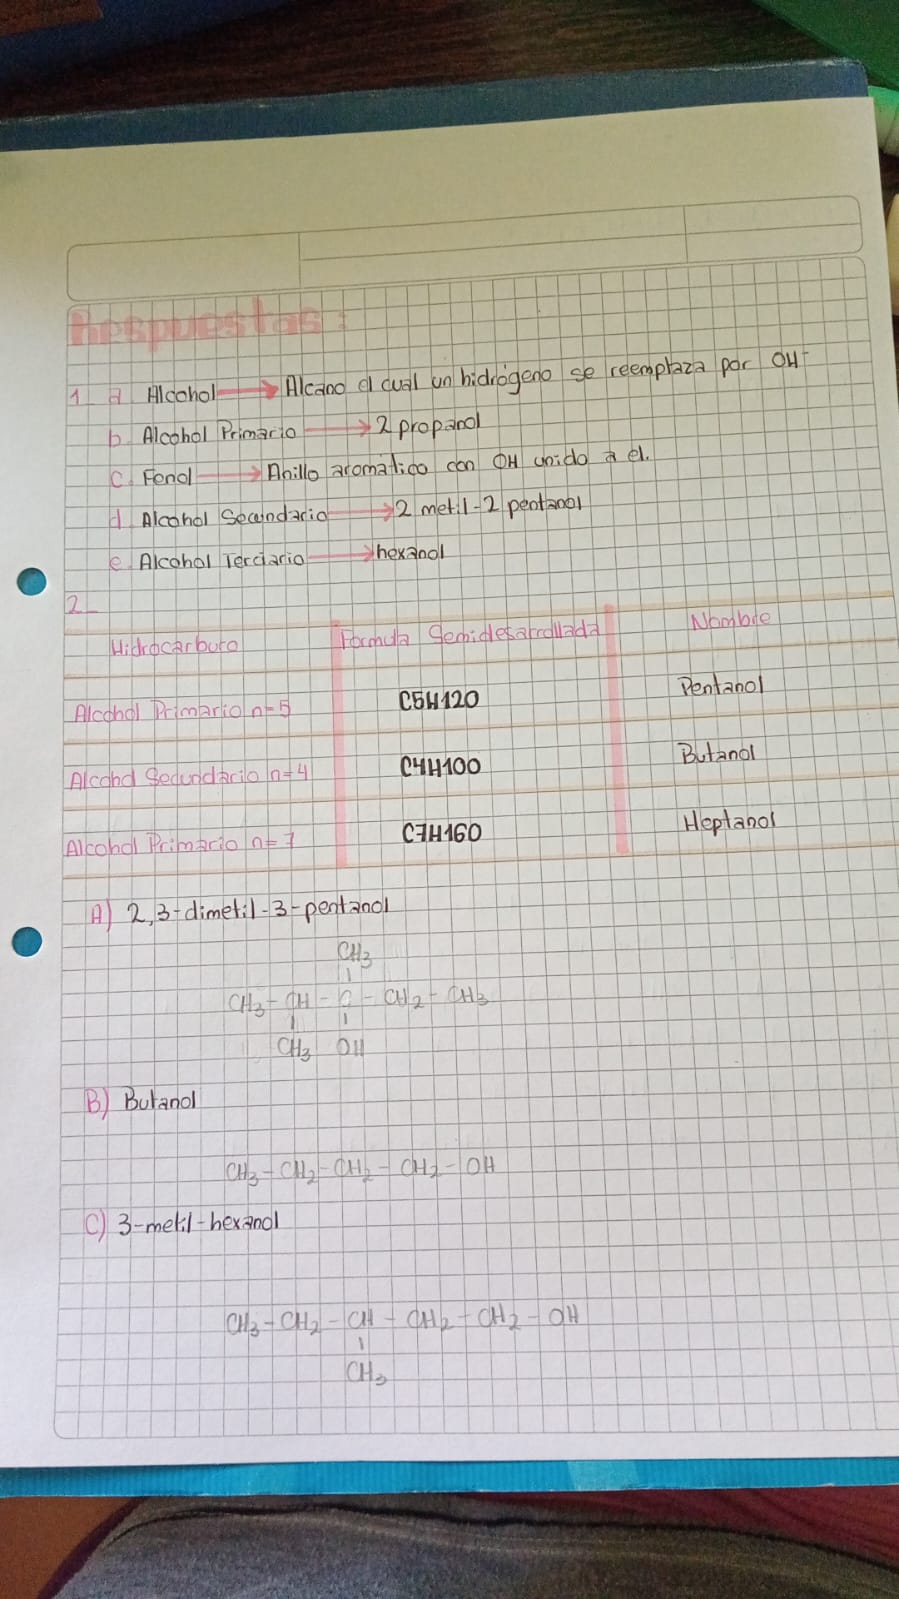 Respuestas:
1_ a Alcohol → Alcano el cual un hidrógeno se reemplaza por OH⁻
b. Alcohol Primario → 2 propanol
c. Fenol → Anillo aromático con OH unido a el.
d. Alcohol Secundario → 2 metil-2 pentanol
e. Alcohol Terciario → hexanol
2_
Hidrocarburo Formula Semidesarrollada Nombre
Alcohol Primario n=5 C5H120 Pentanol
Alcohol Secundario n=4 C4H100 Butanol
Alcohol Primario n=7 C7H160 Heptanol
A) 2,3-dimetil-3-pentanol
CH₃
CH₃-CH-C-CH₂-CH₃
CH₃ OH
B) Butanol
CH₃-CH₂-CH₂-CH₂-OH
C) 3-metil-hexanol
CH₃-CH₂-CH-CH₂-CH₂-OH
CH₃